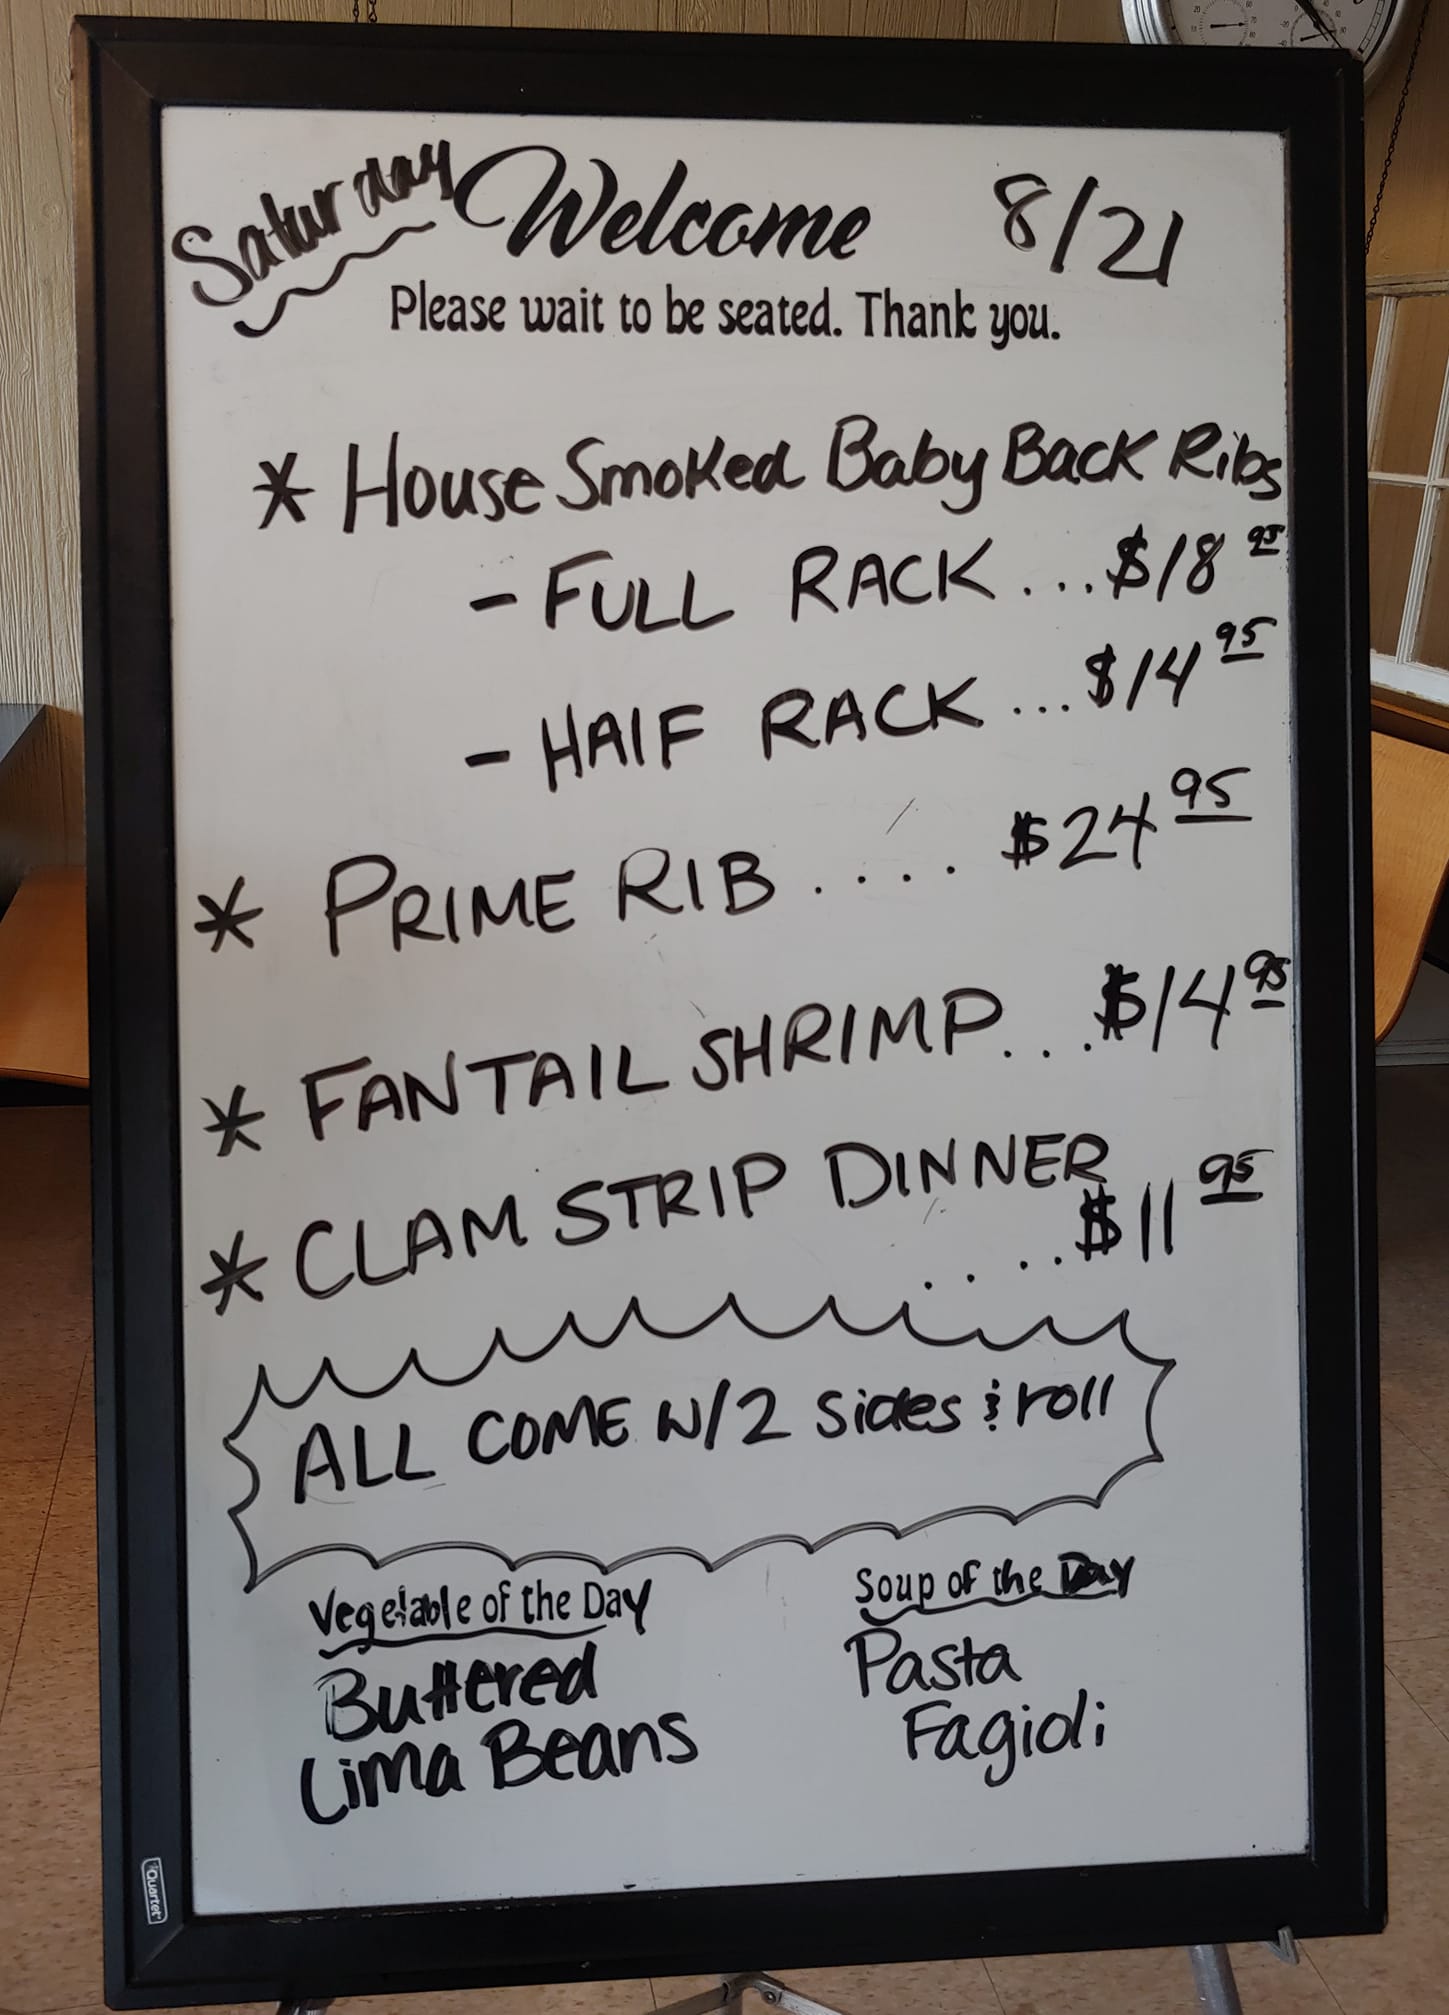 Saturday Welcome 8/21
Please wait to be seated. Thank you.
* House Smoked Baby Back Ribs
- FULL RACK ... $18 95
- HALF RACK ... $14 95
* PRIME RIB .... $24 95
* FANTAIL SHRIMP... $14 95
* CLAM STRIP DINNER
.....$11 95
ALL COME W/2 Sides & roll
Vegetable of the Day
Buttered
Lima Beans
Soup of the Day
Pasta
Fagioli
Quartet